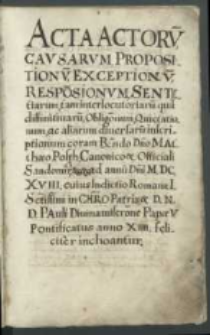 ACTA ACTORV̄
CAVSARVM PROPOSI
TIONV̄ EXCEPTIONV̄
RESPŌSIONVM, SENTĒ
tiarum, tam interlocutoriarū quā
diffinitiuarū, Obligōnum, Quietatio
num, ac aliarum diuersarū inscri
ptionum coram Rn̄do Dn̄o MAT
thaeo Canonico & Officiali
Sandomirien ad annū Dn̄i M. DC.
XVIII. cuius Indictio Romana I.
Sctissimi in CHRŌ Patris & D. N.
D. PAuli Diuina miserōne Papæ V
Pontificatus anno XIIII. feli
citer inchoantur,